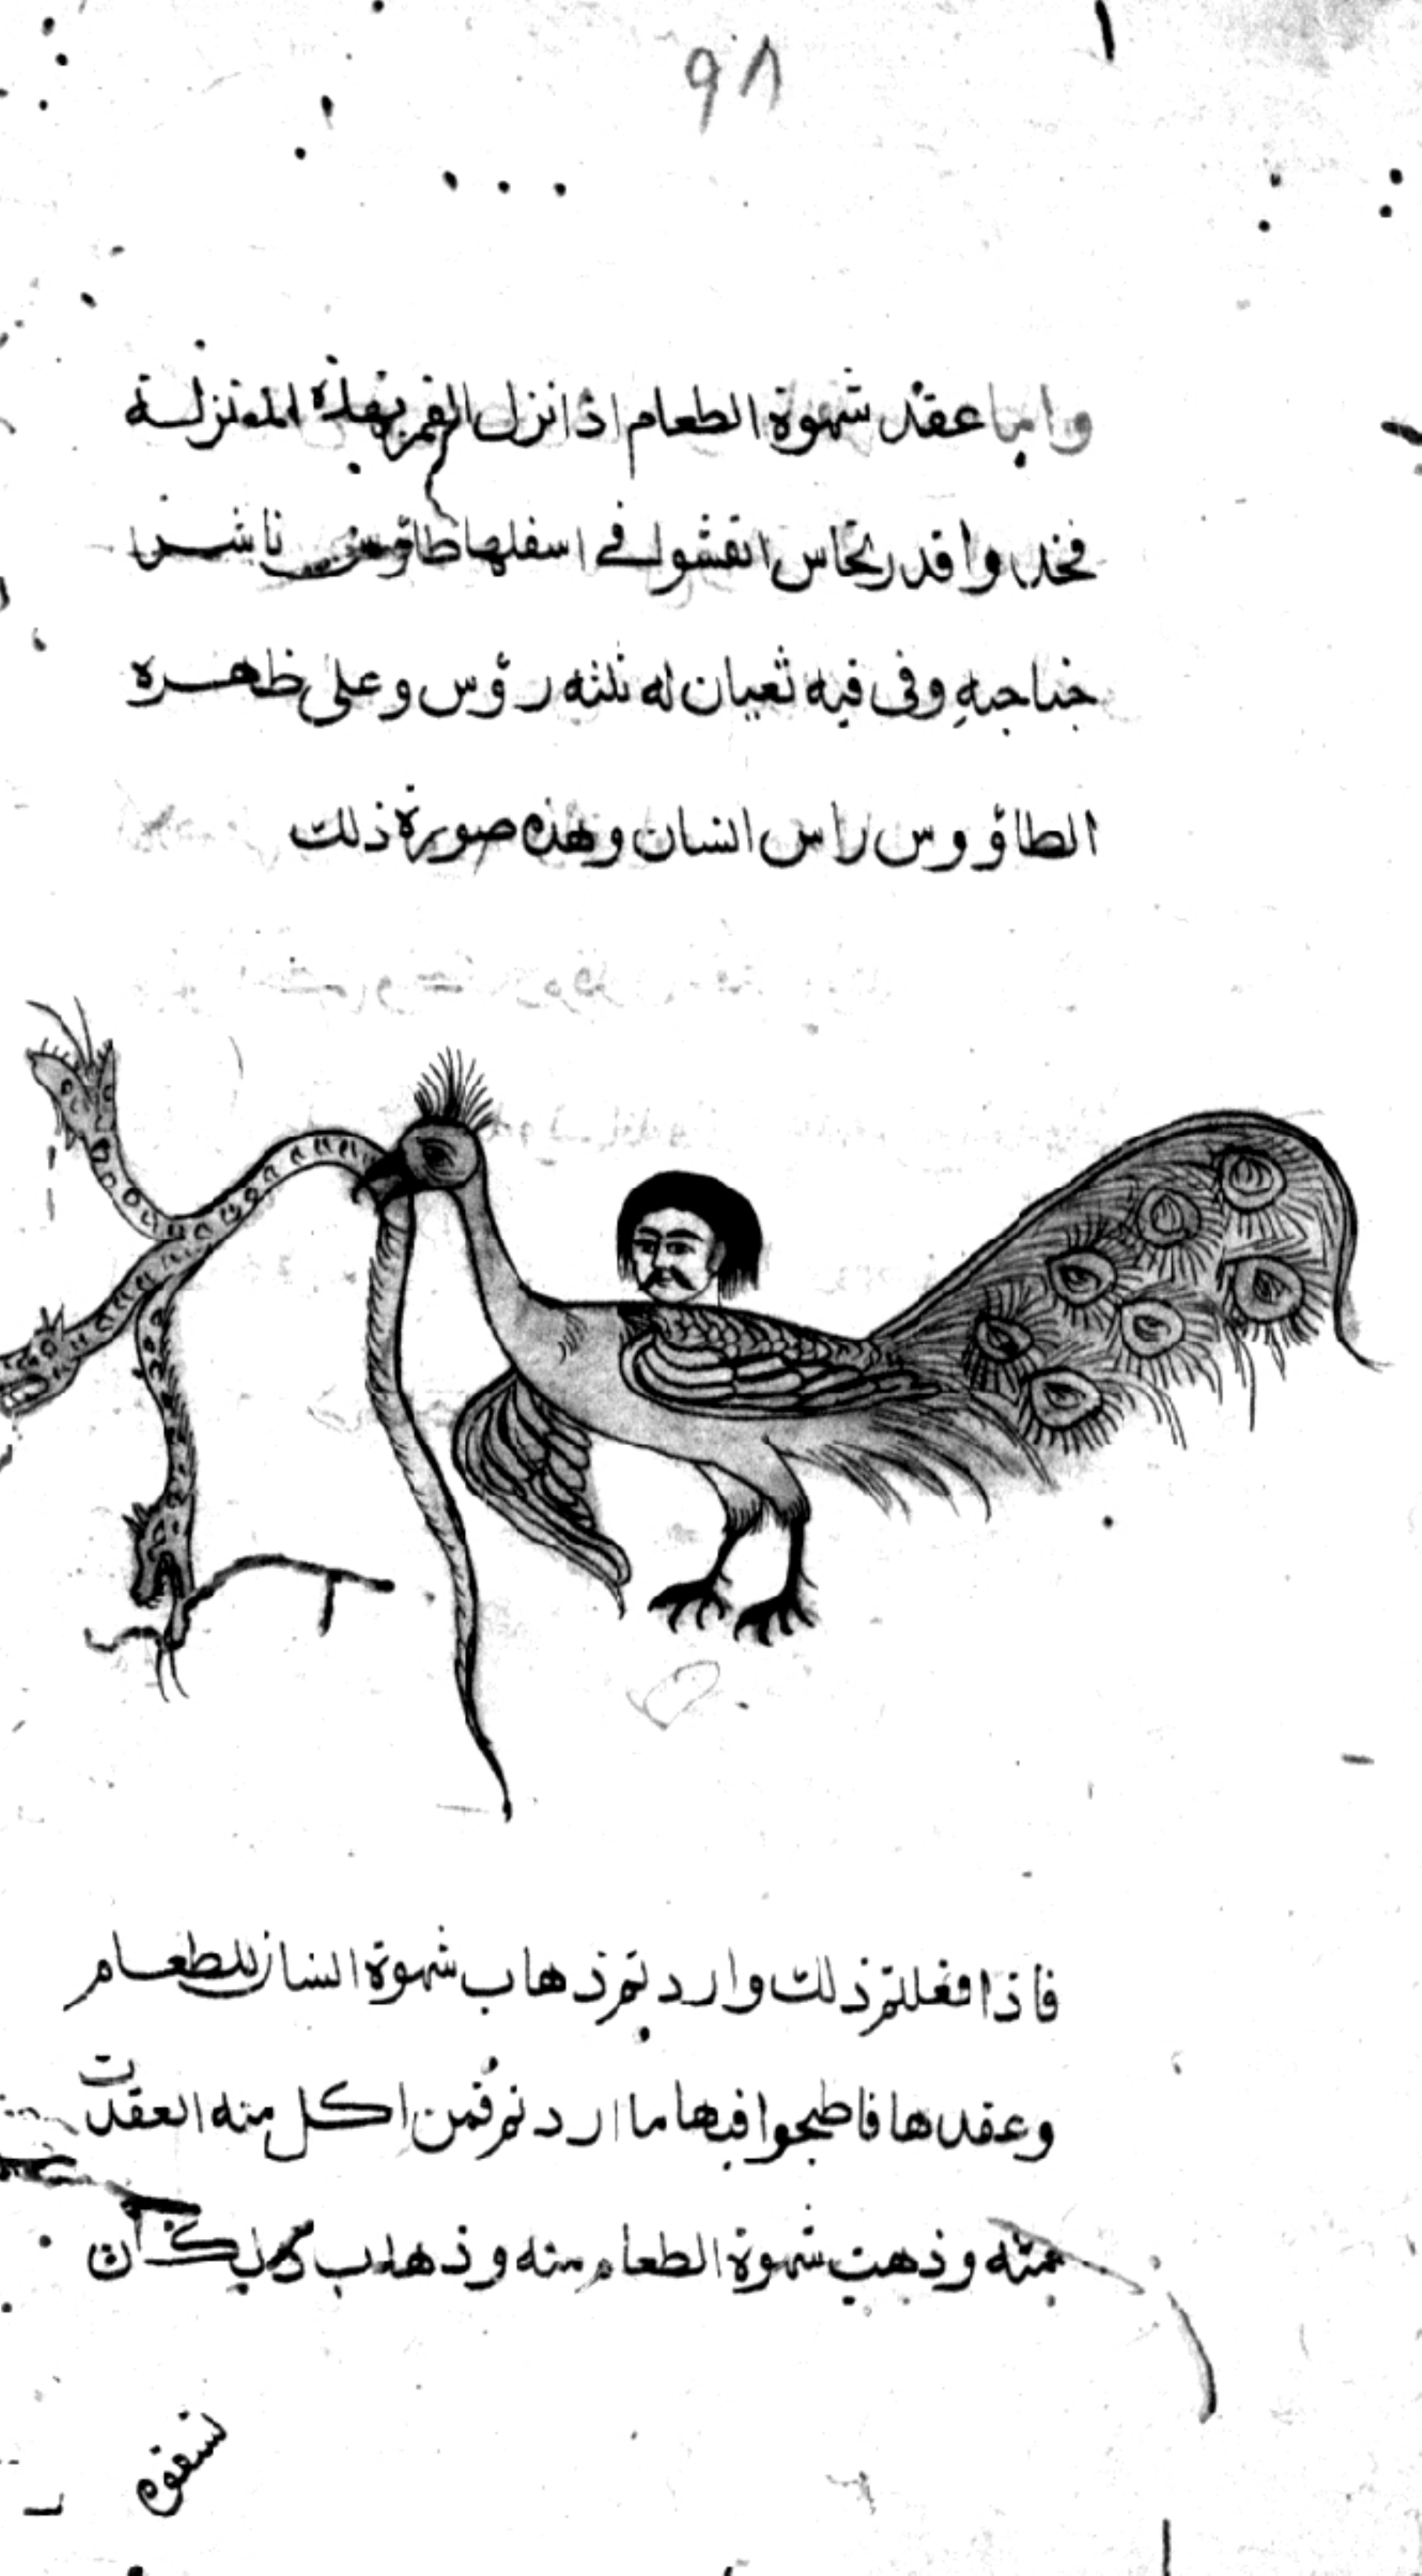 ٩٨
واما عقد شهوة الطعام اذا نزل القمر بهذه المنزلة
فخذوا قدر نحاس انقشوا في اسفلها طاؤس ناشرا
جناحيه وفى فيه ثعبان له ثلثه رؤس وعلى ظهره
الطاؤوس راس انسان وهذه صورة ذلك
فاذا فعلتم ذلك واردتم ذهاب شهوة النسا للطعام
وعقدها فاطبخوا فيها ما اردتم فمن اكل منه انعقدت
وذهبت شهوة الطعام منه وذهاب ذلك ان
تسقوه